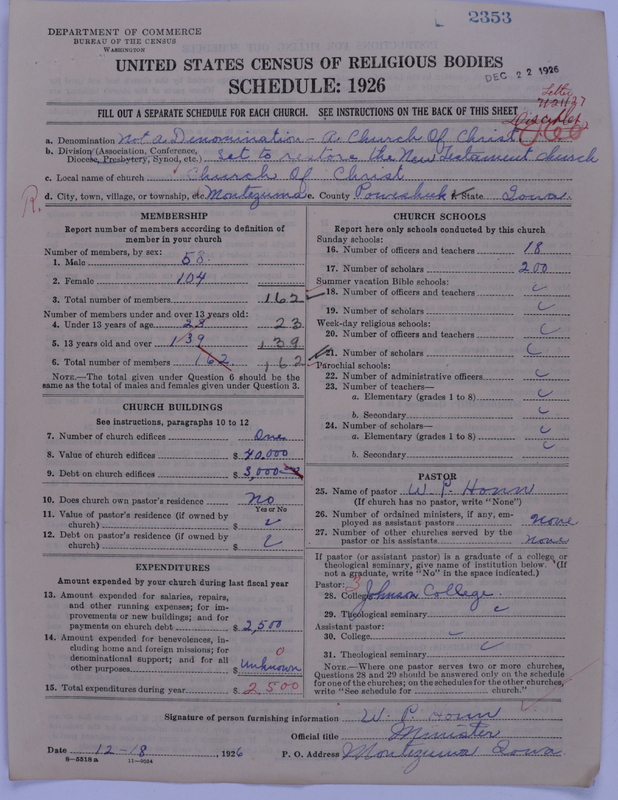 2353
DEPARTMENT OF COMMERCE
BUREAU OF THE CENSUS
WASHINGTON
UNITED STATES CENSUS OF RELIGIOUS BODIES
DEC 22 1926
SCHEDULE: 1926
Letter
7/21/27
Disciples
FILL OUT A SEPARATE SCHEDULE FOR EACH CHURCH. SEE INSTRUCTIONS ON THE BACK OF THIS SHEET
a. Denomination Not a Denomination - A Church Of Christ
b. Division (Association, Conference, Diocese, Presbytery, Synod, etc.) set to restore the New Testament church
c. Local name of church Church Of Christ
R.
d. City, town, village, or township, etc. Montezuma e. County Poweshiek f. State Iowa.
MEMBERSHIP
Report number of members according to definition of member in your church
Number of members, by sex:
1. Male 58
2. Female 104
3. Total number of members 162
Number of members under and over 13 years old:
4. Under 13 years of age 23 23
5. 13 years old and over 139 139
6. Total number of members 162 162
NOTE.—The total given under Question 6 should be the same as the total of males and females given under Question 3.
CHURCH BUILDINGS
See instructions, paragraphs 10 to 12
7. Number of church edifices One
8. Value of church edifices $ 40.000
9. Debt on church edifices $ 3,000
10. Does church own pastor's residence No
Yes or No
11. Value of pastor's residence (if owned by church) $
12. Debt on pastor's residence (if owned by church) $
EXPENDITURES
Amount expended by your church during last fiscal year
13. Amount expended for salaries, repairs, and other running expenses; for improvements or new buildings; and for payments on church debt $ 2,500
14. Amount expended for benevolences, including home and foreign missions; for denominational support; and for all other purposes 0 $ Unknown
15. Total expenditures during year $ 2500
CHURCH SCHOOLS
Report here only schools conducted by this church
Sunday schools:
16. Number of officers and teachers 18
17. Number of scholars 200
Summer vacation Bible schools:
18. Number of officers and teachers
19. Number of scholars
Week-day religious schools:
20. Number of officers and teachers
21. Number of scholars
Parochial schools:
22. Number of administrative officers
23. Number of teachers—
a. Elementary (grades 1 to 8)
b. Secondary
24. Number of scholars—
a. Elementary (grades 1 to 8)
b. Secondary
PASTOR
25. Name of pastor W. P. Honn
(If church has no pastor, write "None")
26. Number of ordained ministers, if any, employed as assistant pastors none
27. Number of other churches served by the pastor or his assistants none
If pastor (or assistant pastor) is a graduate of a college or theological seminary, give name of institution below. (If not a graduate, write "No" in the space indicated.)
Pastor: 3
28. College Johnson College.
29. Theological seminary
Assistant pastor:
30. College
31. Theological seminary
NOTE.—Where one pastor serves two or more churches, Questions 28 and 29 should be answered only on the schedule for one of the churches; on the schedules for the other churches, write "See schedule for church."
Signature of person furnishing information W. P. Honn
Official title Minister
Date 12-18, 1926 P. O. Address Montezuma Iowa
8-5518a 11-9054